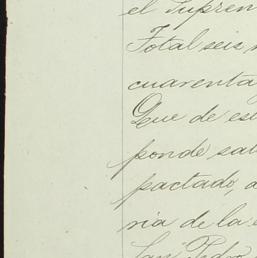 el Supren
Total seis
cuarenta
Que de es
ponde sat
pactado, a
ria de la
San Pedro